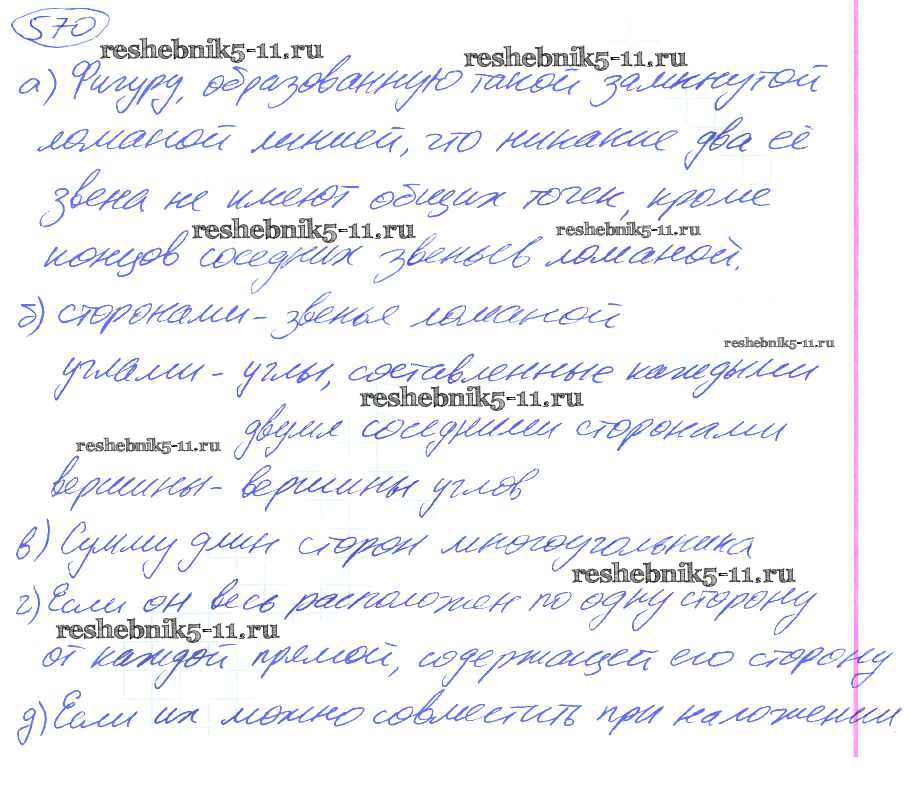 570
reshebnik5-11.ru reshebnik5-11.ru
а) Фигуру, образованную такой замкнутой
ломаной линией, что никакие два её
звена не имеют общих точек, кроме
reshebnik5-11.ru reshebnik5-11.ru
концов соседних звеньев ломаной.
б) сторонами - звенья ломаной
reshebnik5-11.ru
углами - углы, составленные каждыми
reshebnik5-11.ru
двумя соседними сторонами
reshebnik5-11.ru
вершины - вершины углов
в) Сумму длин сторон многоугольника
reshebnik5-11.ru
г) Если он весь расположен по одну сторону
reshebnik5-11.ru
от каждой прямой, содержащей его сторону
д) Если их можно совместить при наложении